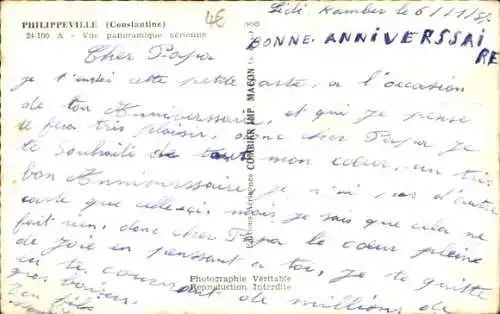 PHILIPPEVILLE (Constantine)
24-100 A - Vue panoramique aérienne
46
Sidi Kamber le 6/11/5
BONNE ANNIVERSSAIRE
Cher Papa
je t'envoi cette petite carte, a l'occasion
de ton Anniverssaire, et qui je pense
te fera très plaisir, donc cher Papa je
te souhaite de tout mon cœur, un très
bon Anniverssaire je n'ai pas d'autre
carte que celle-çi, mais je sais que cela ne
fait rien, donc cher Papa le cœur pleine
de joie en pensant a toi, je te quitte
en te couvrant de millions de
gros baisers.
Ton fils
Editions Aériennes COMBIER IMP. MACON
Photographie Véritable
Reproduction Interdite